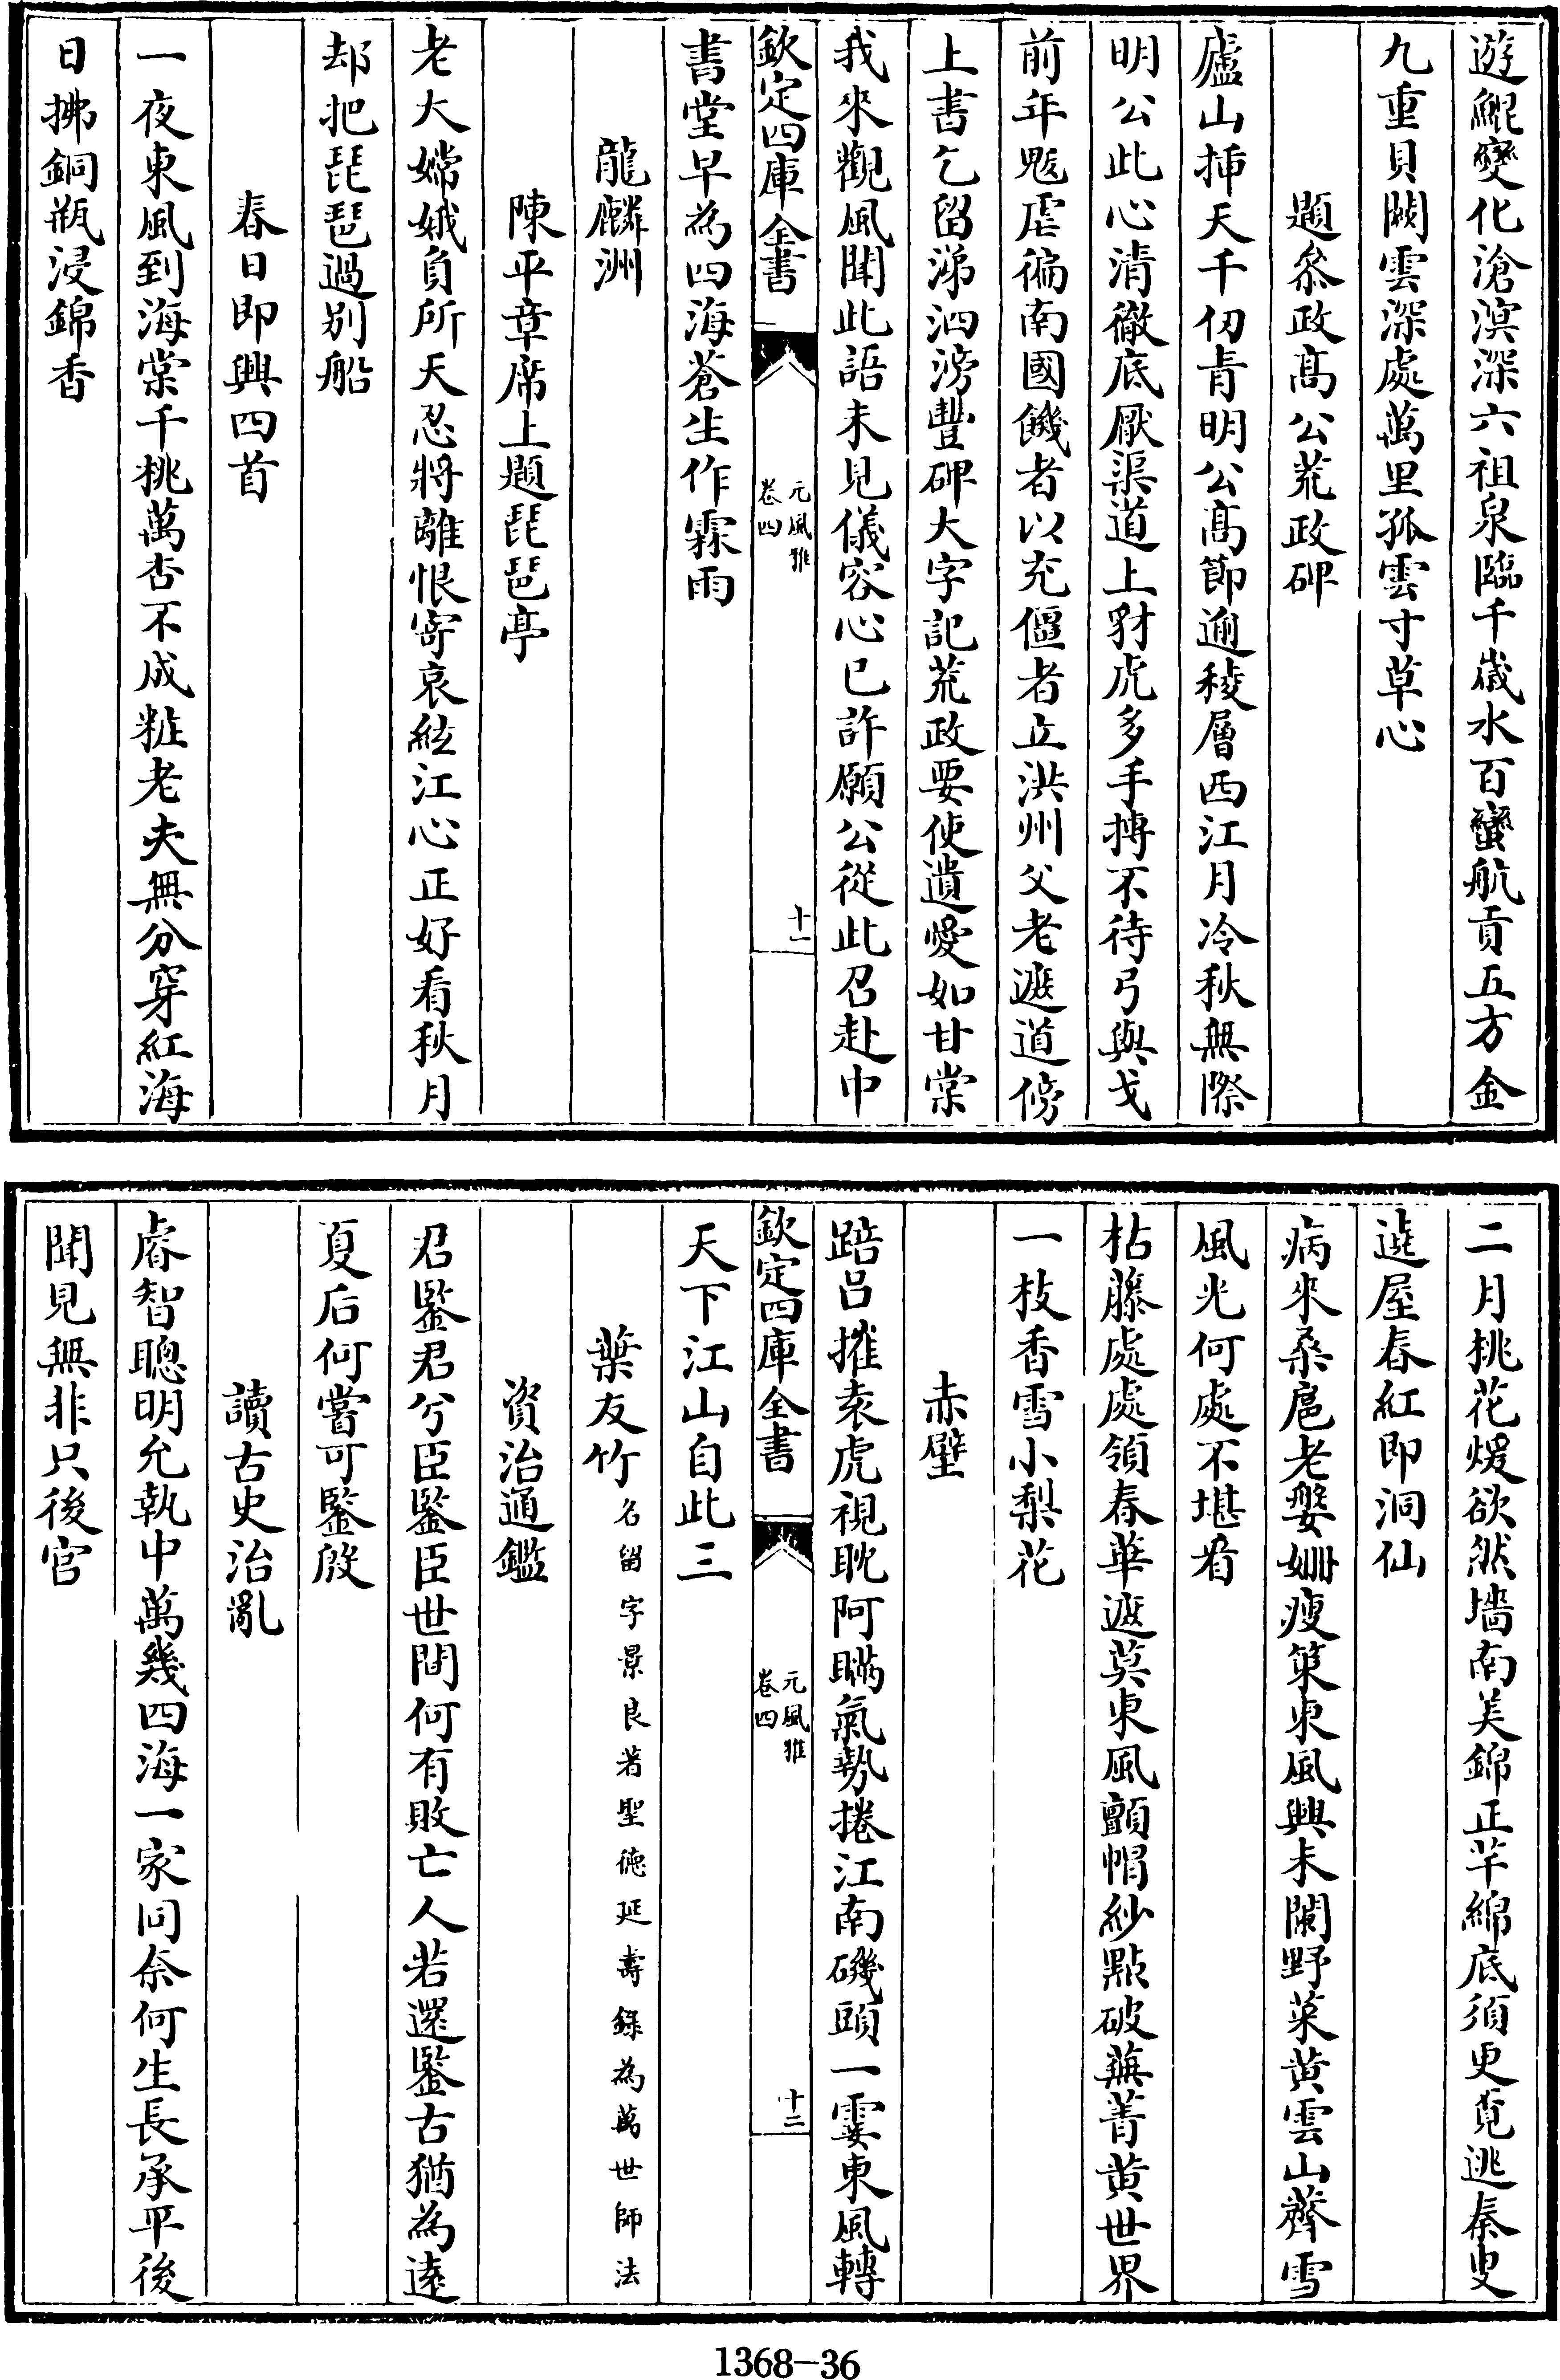 遊鯤變化滄溟深六祖泉臨千歳水百蠻航貢五方金
九重貝闕雲深處萬里孤雲寸草心
題叅政髙公荒政碑
廬山揷天千仞青明公髙節逾稜層西江月冷秋無際
明公此心清徹底厭渠道上豺虎多手搏不待弓與戈
前年魃虐徧南國饑者以充僵者立洪州父老遮道傍
上書乞留涕泗滂豐碑大字記荒政要使遺愛如甘棠
我來觀風聞此語未見儀容心已許願公從此召赴中
欽定四庫全書
元風雅
卷四
十一
書堂早為四海蒼生作霖雨
龍麟洲
陳平章席上題琵琶亭
老大嫦娥負所天忍將離恨寄哀絃江心正好看秋月
却把琵琶過别船
春日即興四首
一夜東風到海棠千桃萬杏不成粧老夫無分穿紅海
日拂銅瓶浸錦香
二月桃花煖欲然墻南美錦正芊綿底須更覔逃秦叟
遶屋春紅即洞仙
病來桑扈老婆姍瘦䇿東風興未闌野菜黄雲山薺雪
風光何處不堪看
枯藤處處領春華遮莫東風顫帽紗點破蕪菁黄世界
一枝香雪小梨花
赤壁
踣呂摧袁虎視耽阿瞞氣勢捲江南磯頭一霎東風轉
欽定四庫全書
元風雅
卷四
十二
天下江山自此三
葉友竹名留字景良著聖德延壽錄為萬世師法
資治通鑑
君鋻君兮臣鋻臣世間何有敗亡人若還鋻古猶為逺
夏后何嘗可鋻殷
讀古史治亂
睿智聰明允執中萬幾四海一家同奈何生長承平後
聞見無非只後宫
1368-36